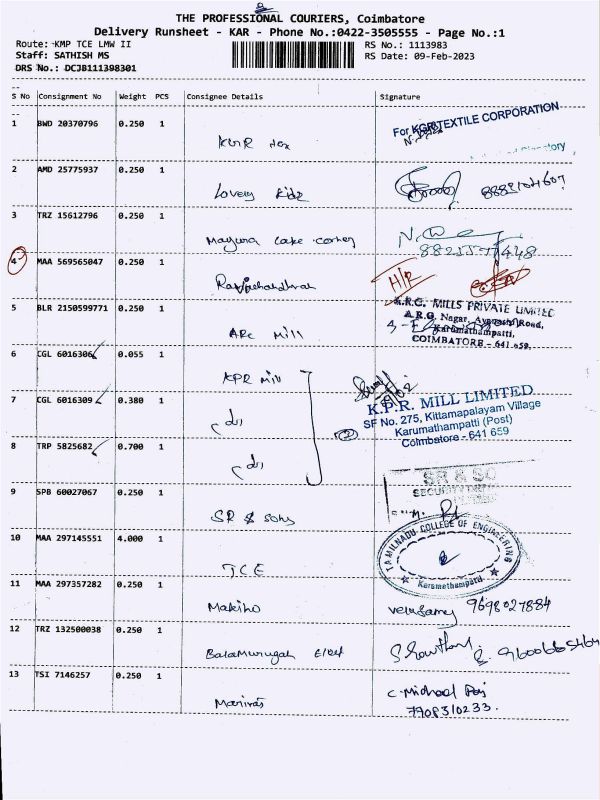 THE PROFESSIONAL COURIERS, Coimbatore
Delivery Runsheet - KAR - Phone No.:0422-3505555 - Page No.:1
Route: KMP TCE LMW II
RS No.: 1113983
Staff: SATHISH MS
RS Date: 09-Feb-2023
DRS No.: DCJB111398301
S No Consignment No Weight PCS Consignee Details Signature
1 BWD 20370796 0.250 1
For KGR TEXTILE CORPORATION
2 AMD 25775937 0.250 1
Lovely Kidz
3 TRZ 15612796 0.250 1
Mayura Cake corner
4 MAA 569565047 0.250 1
H/R
5 BLR 2150599771 0.250 1
ARC Mill
A.R.G. MILLS PRIVATE LIMITED
A.R.G. Nagar, Avanashi Road,
Karumathampatti,
COIMBATORE - 641 659.
6 CGL 6016306 0.055 1
KPR Mill
7 CGL 6016309 0.380 1
K.P.R. MILL LIMITED
SF No. 275, Kittamapalayam Village
Karumathampatti (Post)
Coimbatore - 641 659
8 TRP 5825682 0.700 1
9 SPB 60027067 0.250 1
SR & Sons
SR & SO
10 MAA 297145551 4.000 1
TCE
TAMILNADU COLLEGE OF ENGINEERING
Karumathampatti
11 MAA 297357282 0.250 1
Makino
velusamy 9698027884
12 TRZ 132500038 0.250 1
Balamurugan
13 TSI 7146257 0.250 1
C. Michael Raj
7708310233.